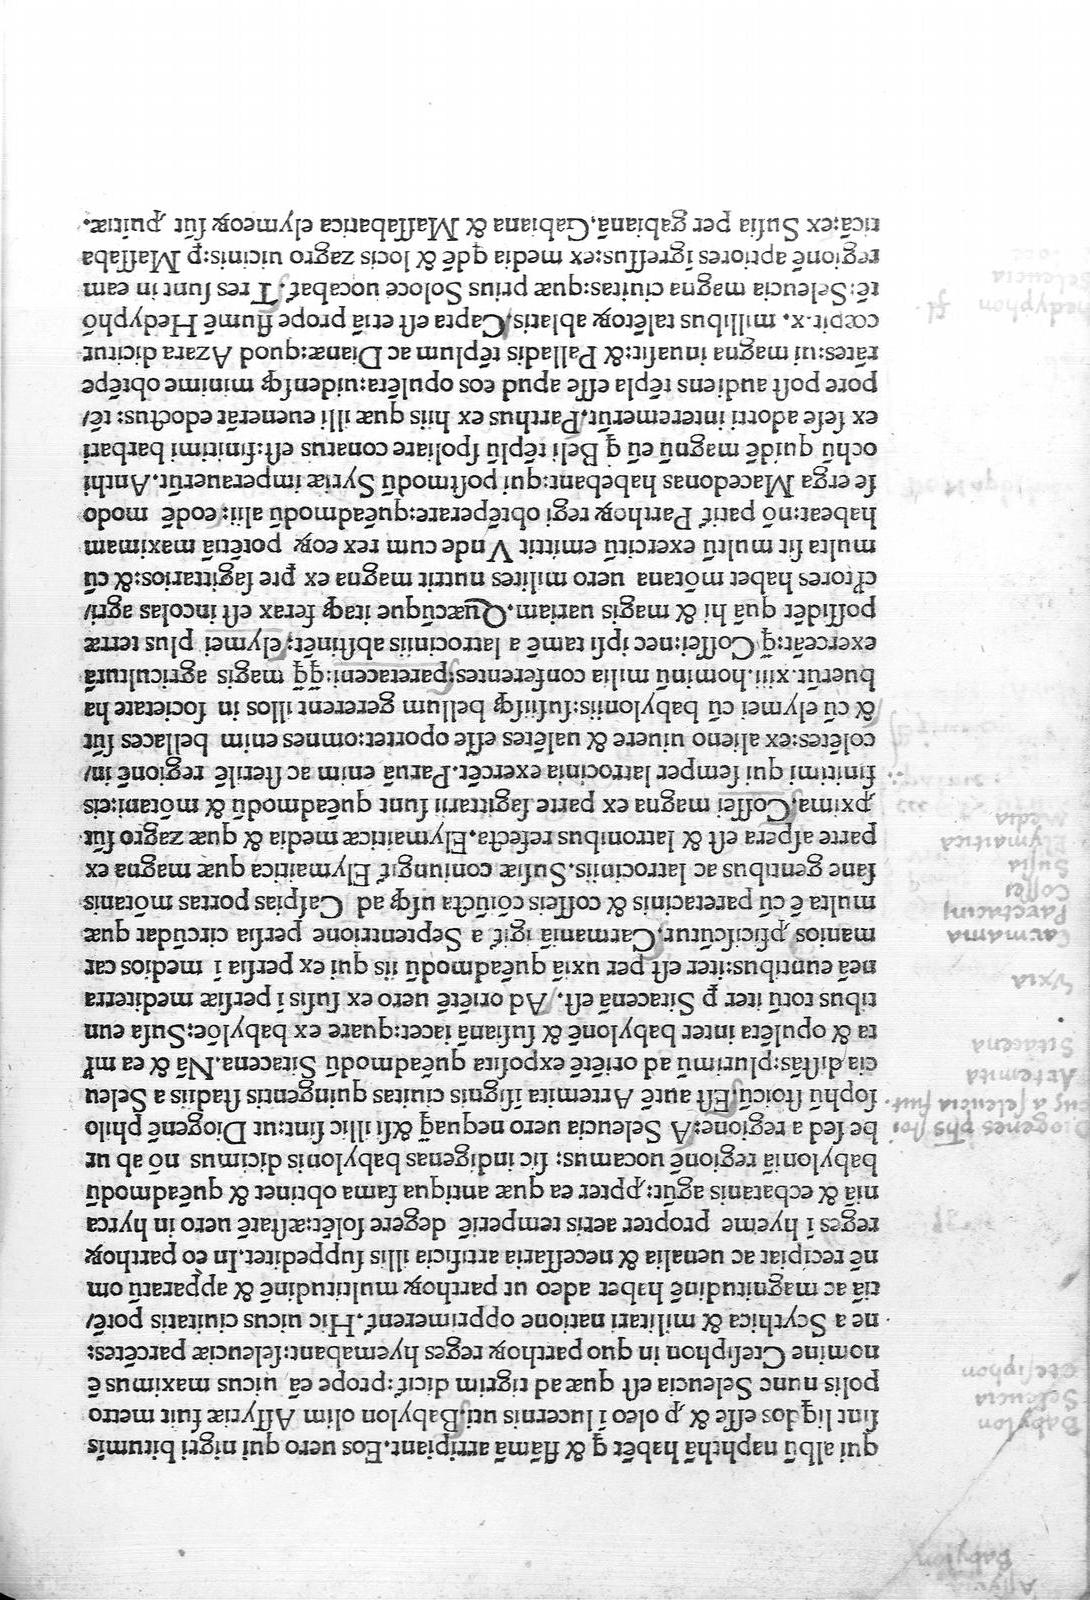 qui albũ naphthã habẽt ꝗ & flãmã arripiant. Eos uero qui nigri bitumis
sint liꝗdos esse & ꝓ oleo ĩ lucernis uti. Babylon olim Assyriæ fuit metro
polis nunc Seleucia est quæ ad tigrim dicit᷑: prope eã uicus maximus ẽ
nomine Ctesiphon in quo parthoꝝ reges hyemabant: seleuciæ parcẽtes:
ne a Scythica & militari natione opprimerent᷑. Hic uicus ciuitatis potẽ/
tiã ac magnitudinẽ habet adeo ut parthoꝝ multitudinẽ & apparatũ om
nẽ recipiat ac uenalia & necessaria artificia illis suppeditet. In eo parthoꝝ
reges ĩ hyeme propter aeris temperiẽ degere solẽt: æstate uero in hyrca
niã & ecbatanis agũt: ꝓpter ea quæ antiqua fama obtinet & quẽadmodũ
babyloniã regionẽ uocamus: sic indigenas babylonis dicimus nõ ab ur
be sed a regione: A Seleucia uero nequaꝗ̃ & si illic sint: ut Diogenẽ philo
sophũ stoicũ. Est autẽ Artemita ĩsignis ciuitas quingentis stadiis a Seleu
cia distãs: plurimũ ad oriẽtẽ exposita quẽadmodũ Sitacena. Nã & ea ml᷑
ta & opulẽta inter babylonẽ & susianã iacet: quare ex babylõe: Susa eun
tibus totũ iter ꝑ Sitacenã est. Ad oriẽtẽ uero ex susis ĩ persiæ mediterra
neã euntibus: iter est per uxiã quẽadmodũ iis qui ex persia ĩ medios car
manios ꝓficiscũtur. Carmaniã igit᷑ a Septentrione persia circũdat quæ
multa ẽ cũ paretacinis & cosseis cõiũcta usꝙ ad Caspias portas mõtanis
sane gentibus ac latrociniis. Susiæ coniungit᷑ Elymaitica quæ magna ex
parte aspera est & latronibus referta. Elymaiticæ media & quæ zagro sũt
ꝓxima. Cossei magna ex parte sagittarii sunt quẽadmodũ & mõtani: eis
finitimi qui semper latrocinia exercẽt. Paruã enim ac sterilẽ regionẽ in/
colẽtes: ex alieno uiuere & ualẽtes esse oportet: omnes enim bellaces sũt
& cũ elymei cũ babyloniis: susiisꝙ bellum gererent illos in societate ha
buerũt .xiii. hominũ milia conferentes: paretaceni: ꝗ̃ꝗ̃ magis agriculturã
exerceãt: ꝗ̃ Cossei: nec ipsi tamẽ a latrociniis abstinẽt: elymei plus terræ
possidẽt quã hi & magis uariam. Quæcũque itaꝙ ferax est incolas agri/
cl᷑tores habet mõtana uero milites nutrit magna ex ꝑte sagittarios: & cũ
multa sit multũ exercitũ emittit Vnde cum rex eoꝝ potẽtiã maximam
habeat: nõ patit᷑ Parthoꝝ regi obtẽperare: quẽadmodũ alii: eodẽ modo
se erga Macedonas habebant: qui postmodũ Syriæ imperauerũt. Anthi
ochũ quidẽ magnũ cũ ꝗ Beli tẽplũ spoliare conatus est: finitimi barbari
ex sese adorti interemerũt. Parthus ex hiis quæ illi euenerãt edoctus: tẽ/
pore post audiens tẽpla esse apud eos opulẽta: uidensꝙ minime obtẽpe
rãtes: ui magna inuasit: & Palladis tẽplum ac Dianæ: quod Azara dicitur
cœpit .x. millibus talẽtoꝝ ablatis/ Capta est etiã prope flumẽ Hedyphõ
tẽ: Seleucia magna ciuitas: quæ prius Soloce uocabat᷑. Tres sunt in eam
regionẽ aptiores ĩgressus: ex media ꝗdẽ & locis zagro uicinis: ꝑ Massaba
ticã: ex Susia per gabianã. Gabiana & Massabatica elymeoꝝ sũt ꝓuĩtiæ.
Assyria
Babylon
Babylon
Seleucia
Ctesiphon
Diogenes phs stoi
cus a seleucia fuit
Artemita
Sitacena
Vxia
Carmania
Paretacinj
Cossei
Susia
Elymaitica
Media
hedyphon fl.
Seleucia